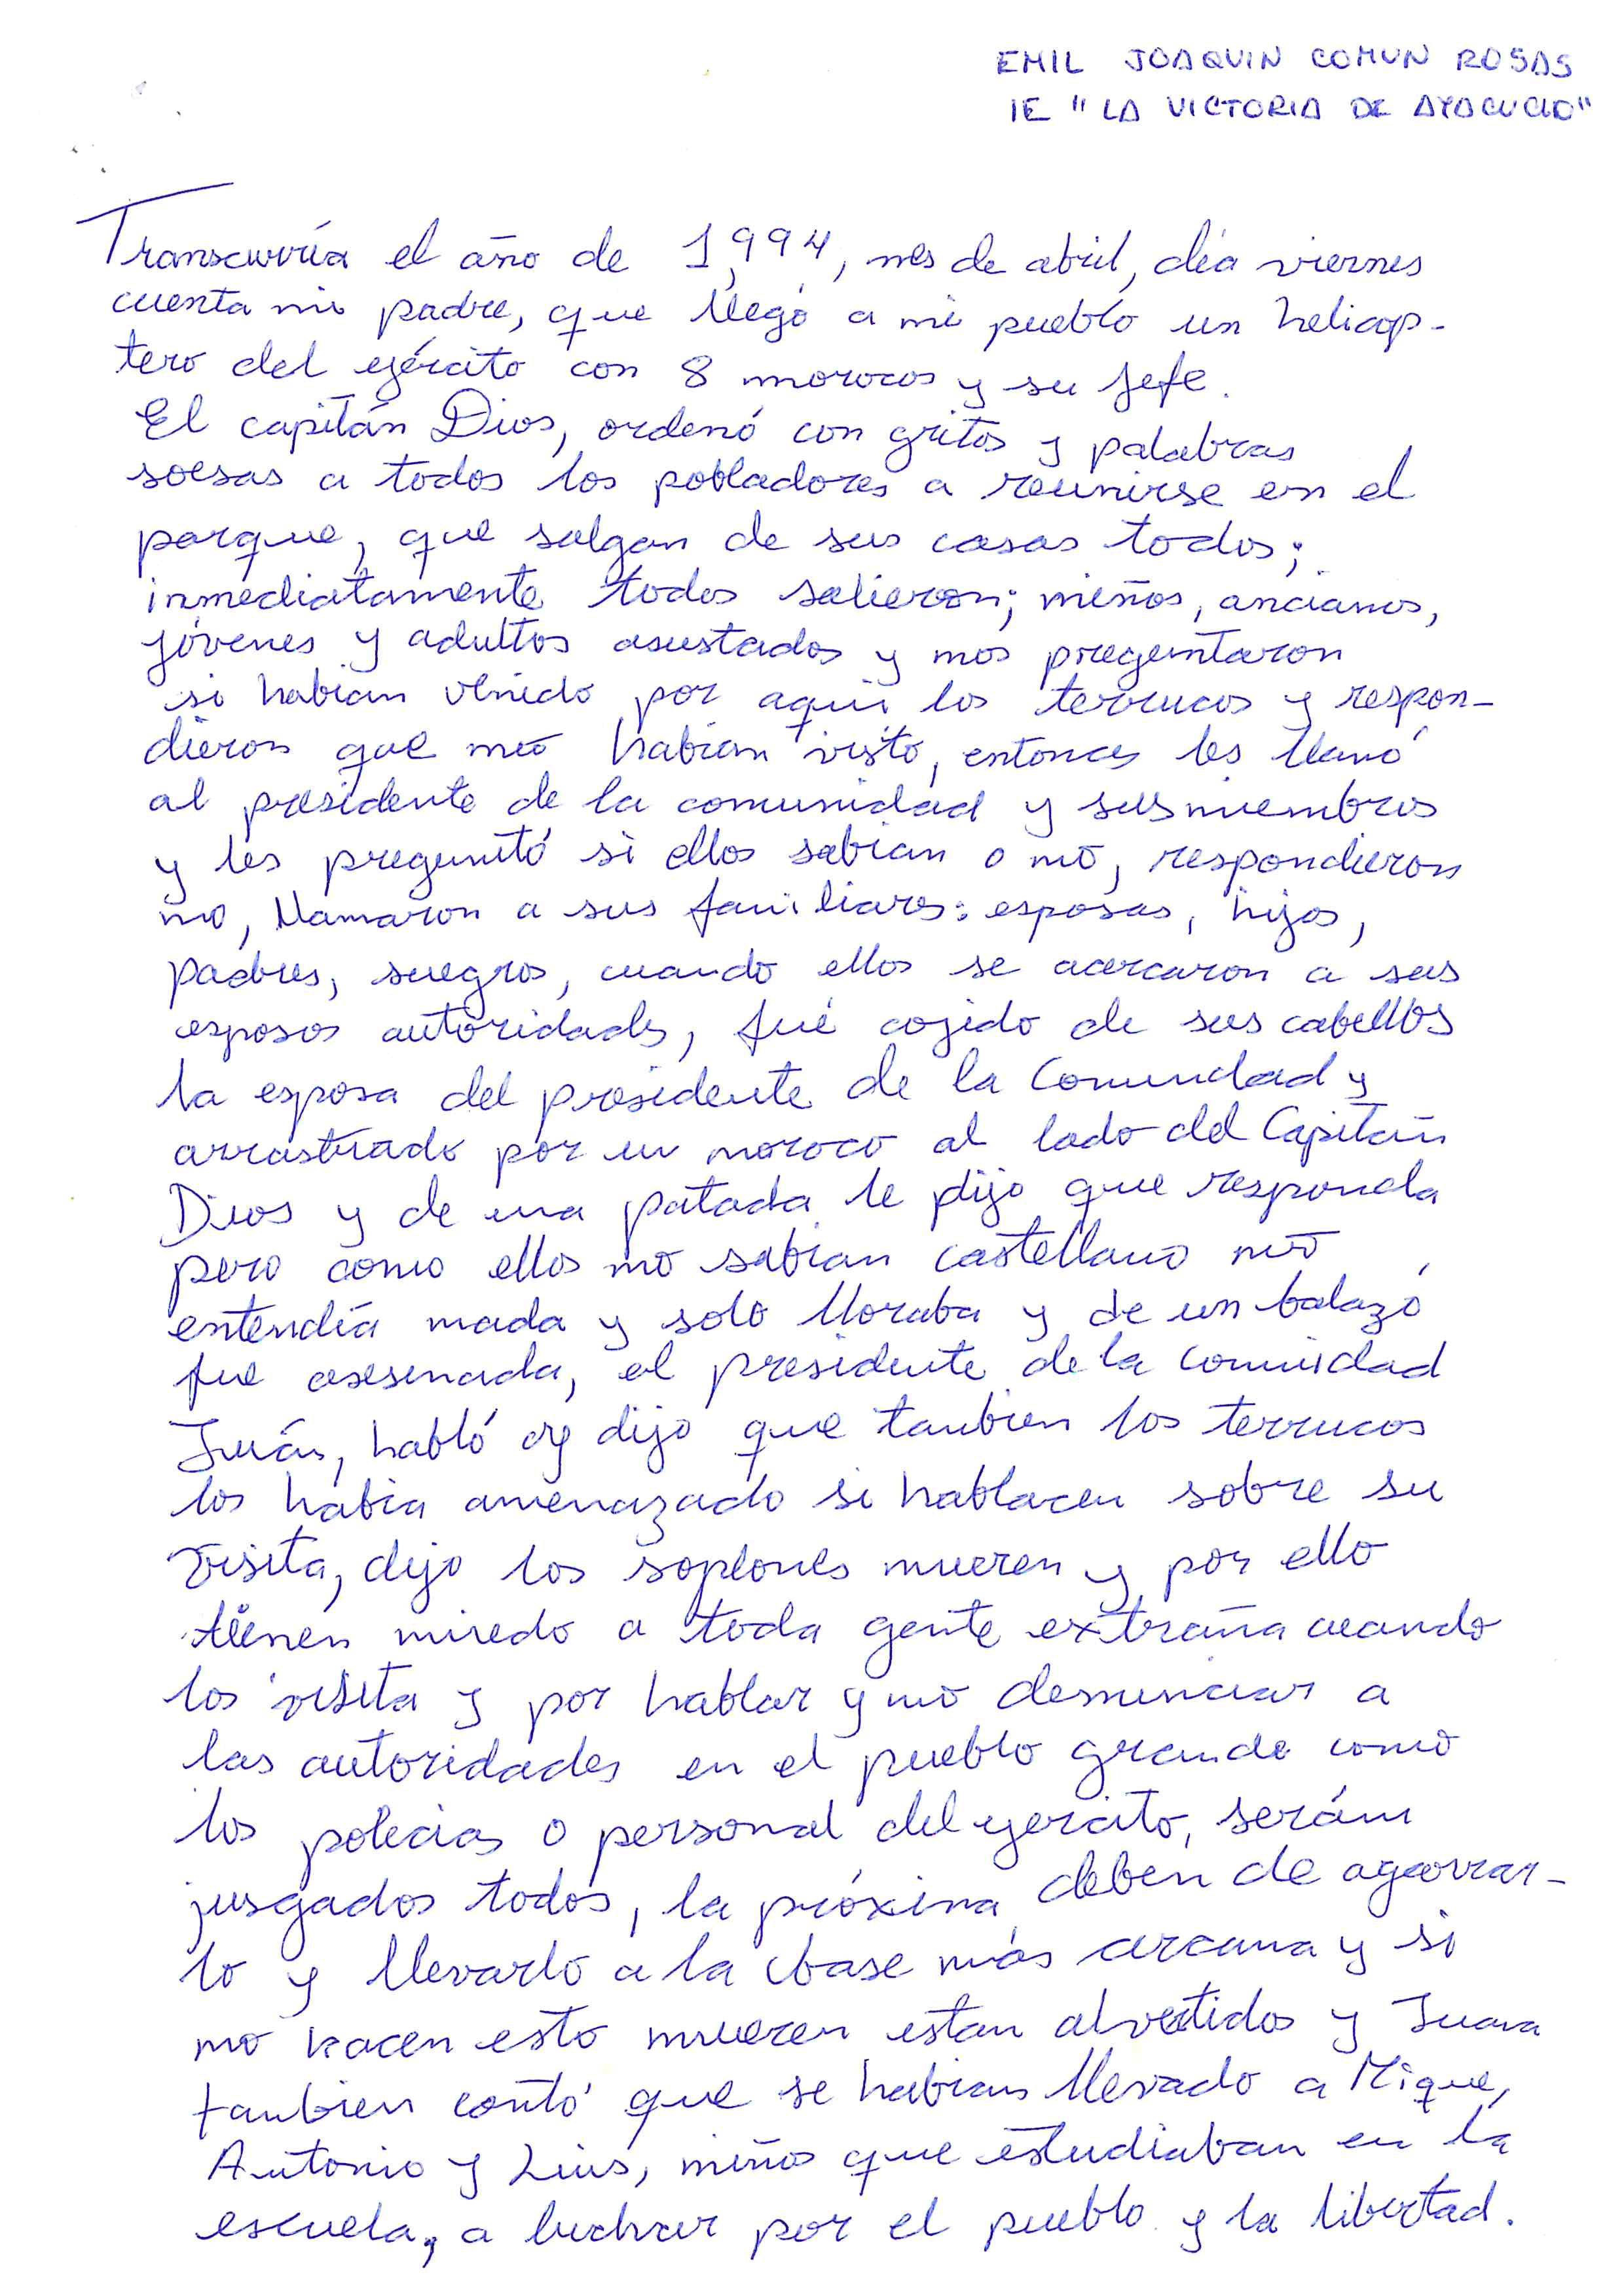 EMIL JOAQUIN COMUN ROSAS
IE "LA VICTORIA DE AYACUCHO"
Transcurría el año de 1,994, mes de abril, día viernes
cuenta mi padre, que llegó a mi pueblo un helicop-
tero del ejército con 8 morocos y su jefe.
El capitán Dios, ordenó con gritos y palabras
soesas a todos los pobladores a reunirse en el
parque, que salgan de sus casas todos;
inmediatamente todos salieron; niños, ancianos,
jóvenes y adultos asustados y nos preguntaron
si habian venido por aqui los terrucos y respon-
dieron que no habian visto, entonces les llamó
al presidente de la comunidad y sus miembros
y les preguntó si ellos sabian o no, respondieron
no, llamaron a sus familiares: esposas, hijos,
padres, suegros, cuando ellos se acercaron a sus
esposos autoridades, fué cojido de sus cabellos
la esposa del presidente de la Comunidad y
arrastrado por un moroco al lado del Capitán
Dios y de una patada le dijo que responda
pero como ellos no sabian castellano no
entendía nada y solo lloraba y de un balazo
fue asesinada, el presidente de la comunidad
Juán, habló y dijo que tanbien los terrucos
los habia amenazado si hablacen sobre su
visita, dijo los soplones mueren y por ello
tienen miedo a toda gente extraña cuando
los visita y por hablar y no denunciar a
las autoridades en el pueblo grande como
los policias o personal del ejercito, serán
jusgados todos, la próxima deben de agarrar-
lo y llevarlo a la base más cercana y si
no hacen esto mueren estan alvertidos y Juana
tanbien contó que se habian llevado a Mique,
Antonio y Luis, niños que estudiaban en la
escuela, a luchar por el pueblo y la libertad.